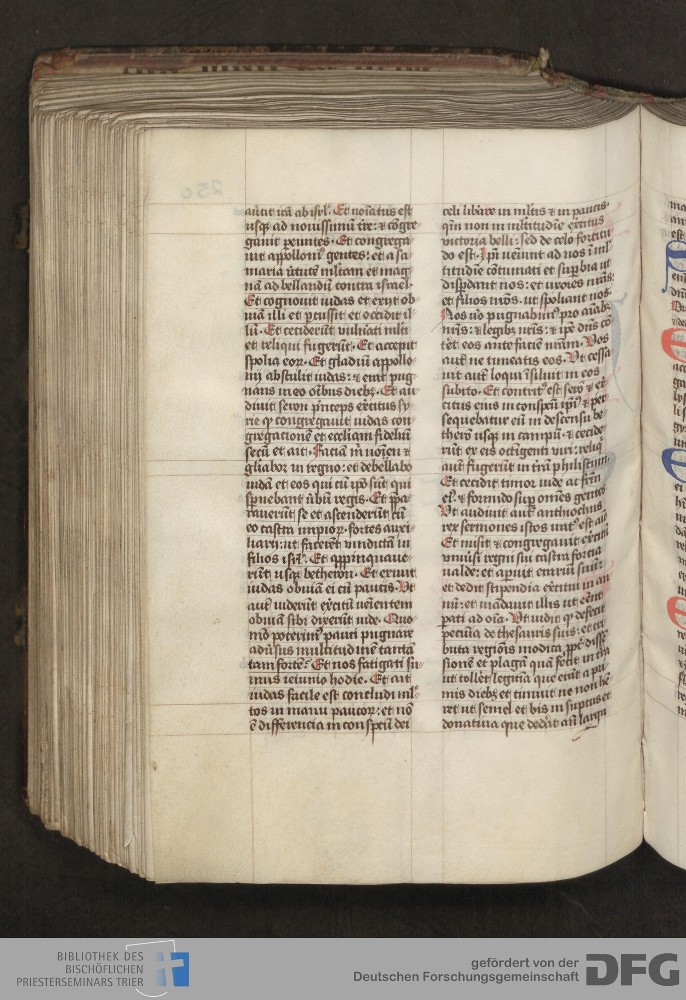 auertit irā ab isrl̄. Et noīatus est
usqꝫ ad nouissimū tr̄e: ⁊ cōgre
gauit peuntes. Et congrega
uit appolloniꝰ gentes: et a sa
maria ũtutē mltam et mag
nā ad bellandū contra israel.
Et cognouit iudas et exiit ob
uiā illi et ꝑcussit et occidit il
lū. Et ceciderūt vulnāti mlti
et reliqui fugerūt. Et accepit
spolia eoꝝ. Et gladiū appollo
nij abstulit iudas: ⁊ erat pug
nans in eo oībus diebꝫ. Et au
diuit seron pⁱnceps exc̄itus sy
rie ꝙ congregauit iudas con
gregationē et eccliam fideliū
secū et ait. Faciā m nomen ⁊
gliabor in regno: et debellabo
iudā et eos qui cū ip̄o sūt qui
spnebant ũbū regis. Et p̄pa
rauerūt se et ascenderūt cū
eo castra impioꝝ. fortes auxi
liarij: ut facerēt vindictā in
filios isrl̄. Et appinquaue
rūt usqꝫ betheron. Et exiuit
iudas obuiā ei cū paucis. Ut
aut̄ uiderūt exc̄itū ueientem
obuiā sibi dixerūt iude. Quo
mō poterimꝰ pauci pugnare
adũsus multitudinē tantā
tam fortē? Et nos fatigati su
mus ieiunio hodie. Et ait
iudas facile est concludi ml
tos in manu paucoꝝ: et nō
ē differencia in conspectu dei
celi libare in mltis ⁊ in paucis.
qm̄ non in mltitudīe exc̄itus
victoria belli: sed de celo fortitu
do est. Ip̄i ueniunt ad nos ī ml
titudīe cōtumati et supbia ut
disꝑdant nos: et uxores nr̄as:
et filios nr̄os. ut spoliant nos.
Nos uō pugnabimꝰ pro aīabꝫ
nr̄is: ⁊ legibꝫ nr̄is: ⁊ ip̄e dn̄s cō
tet eos ante faciē nr̄am. Vos
aut̄ ne timeatis eos. Ut cessa
uit aut̄ loqui īsiluit in eos
subito. Et contritꝰ est seron ⁊ ex̄
citus eius in conspectu ip̄iꝰ ⁊ ꝑ
sequebatur eū in descensu be
theron usqꝫ in campū. ⁊ cecide
rūt ex eis octigenti viri: reliqⁱ
aut̄ fugerūt in tr̄ā philistiim.
Et cecidit timor iude ac fr̄m
eiꝰ. ⁊ formido suꝑ omēs gentes.
Ut audiuit aut̄ anthiochus
rex sermones istos iratꝰ est aīo
Et misit ⁊ congregauit exc̄itū
vniusi regni sui castra fortia
ualde: et apuit erariū suū:
et dedit stipendia exc̄itui in an
nū: et mādauit illis ut eēnt
pati ad oīa. Ut uidit ꝙ defecit
pecūia de thesauris suis: et tri
buta regiōis modica ꝓpt̄ disse
sionē et plagā quā fecit in tr̄a
ut tollet legitīa que erāt a pri
mis diebꝫ et timuit ne non hē
ret ut semel et bis in suptus et
donatiua que dedat añ larga
BIBLIOTHEK DES
BISCHÖFLICHEN
PRIESTERSEMINARS TRIER
gefördert von der
Deutschen Forschungsgemeinschaft
DFG